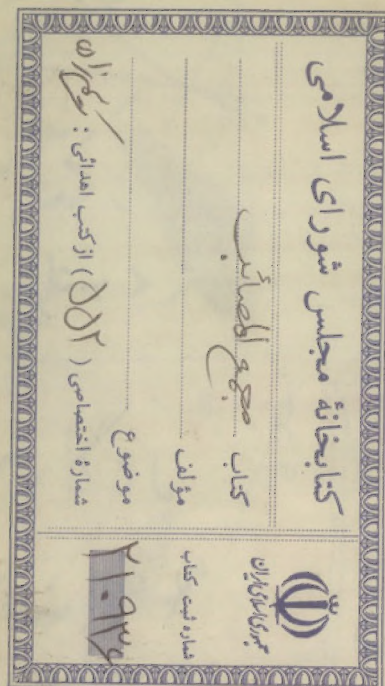 کتابخانهٔ مجلس شورای اسلامی
کتاب مجمع المصائب
مؤلف
موضوع
شمارهٔ اختصاصی (۵۵۲) از کتب اهدائی :
جمهوری اسلامی ایران
شماره ثبت کتاب
۲۱۰۹۳۴